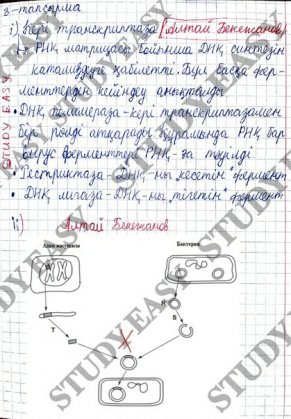 3-тапсырма
i) Кері транскриптаза (Алтай Бекежанов)
- РНҚ матрицасы бойынша ДНҚ синтезін
катализдеуге қабілетті. Бұл басқа фер-
менттерден кейіндеу анықталды
• ДНҚ полимераза-кері транскриптазамен
бір рөлді атқарады. Құрамында РНҚ бар
вирус ферменттері РНҚ-ға тәуелді
• Рестриктаза - ДНҚ-ны кесетін фермент
• ДНҚ лигаза-ДНҚ-ны "тігетін" фермент
ii) Алтай Бекежанов
Адам жасушасы
Бактерия
R
S
T
STUDY EASY
STUDY EASY
STUDY EASY
STUDY EASY